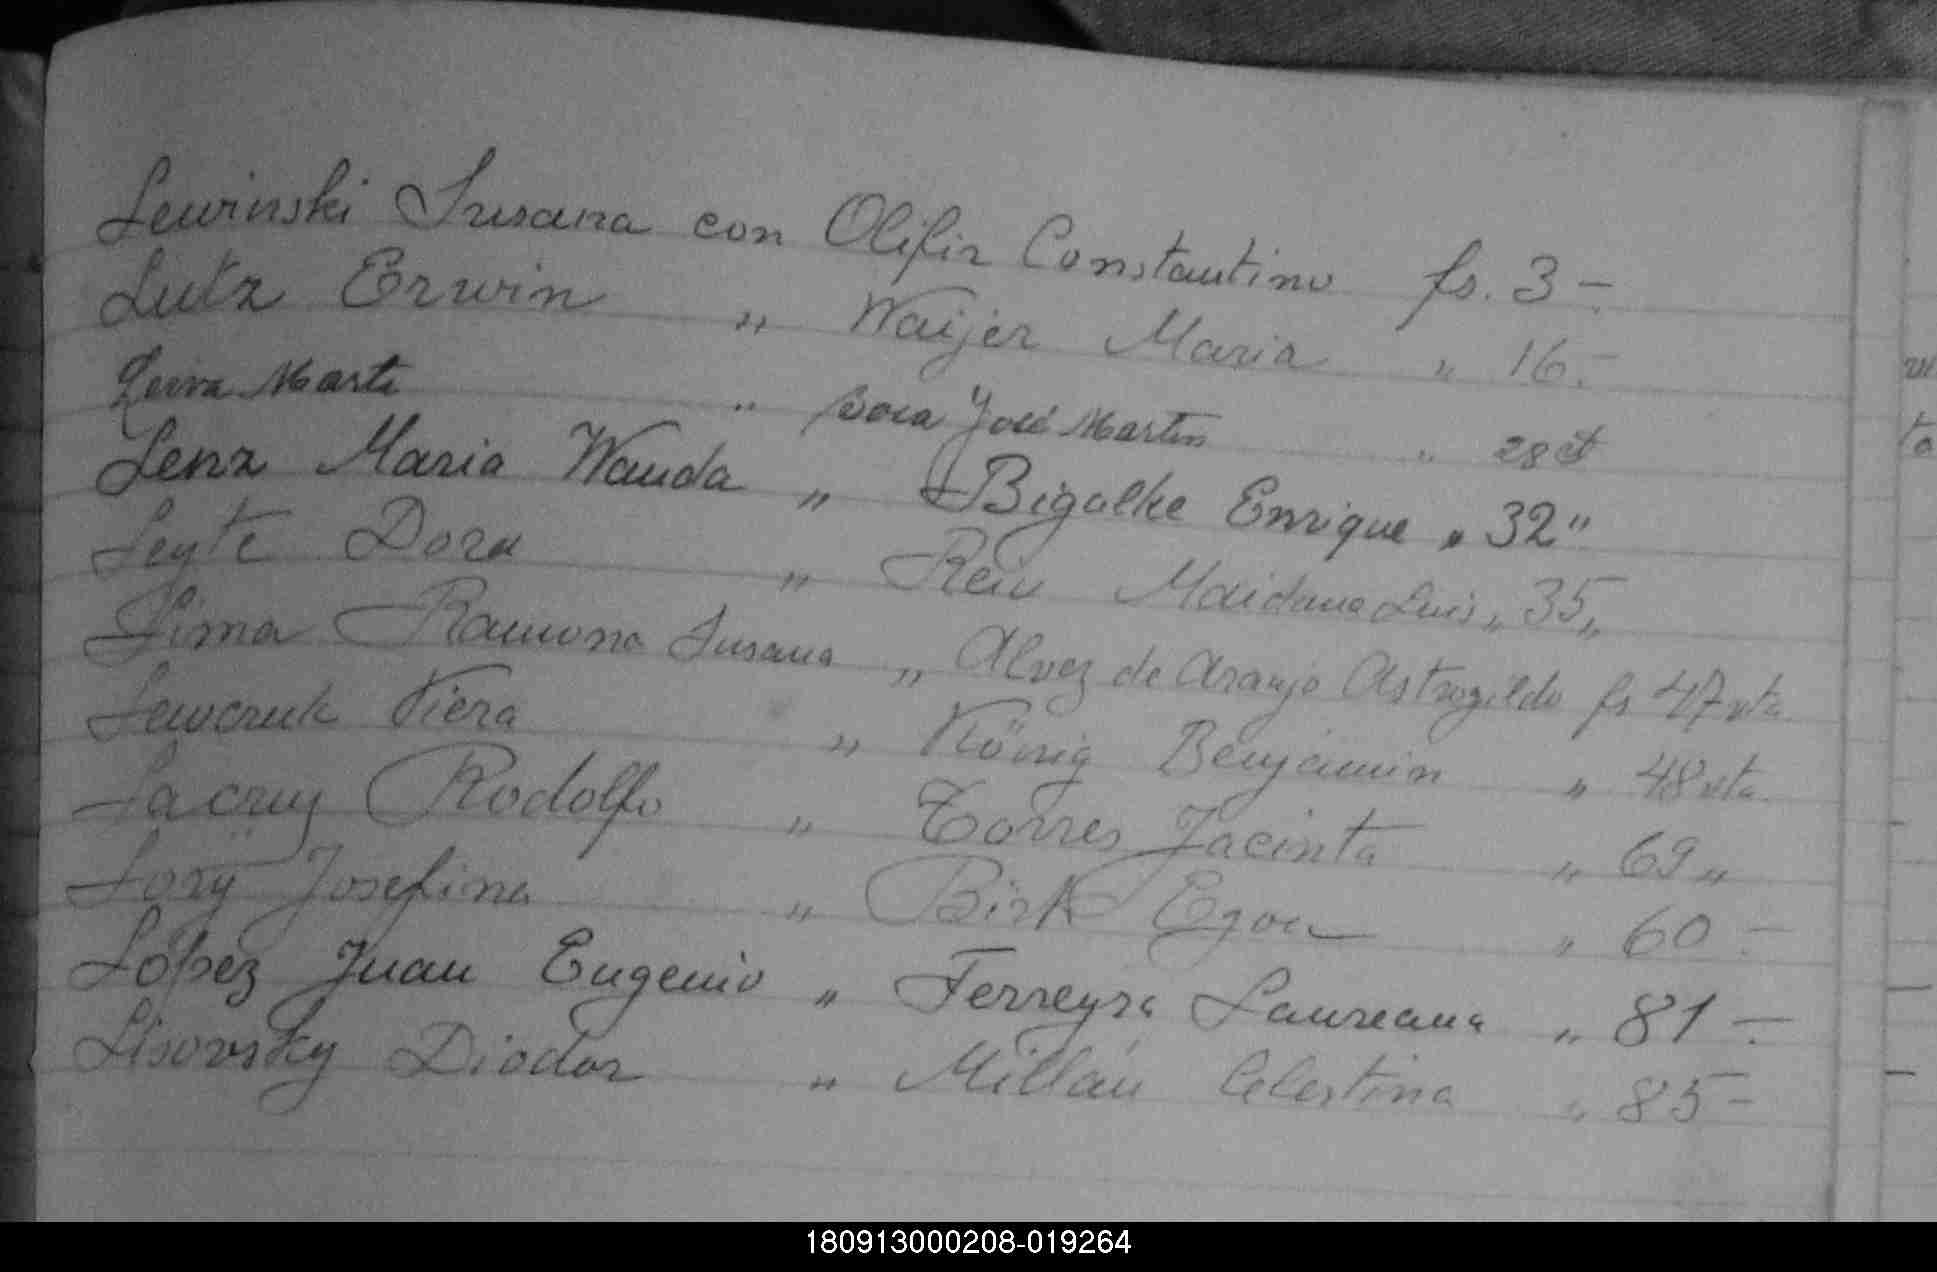 Lewinski Susana con Olifir Constantino fs. 3 -.
Lutz Erwin " Waijer Maria " 16.-
Leiva Marta " Sosa José Martin " 28 et
Lenz Maria Wanda " Bigalke Enrique " 32 "
Leyte Dora " Rein Maidana Luis " 35 "
Lima Ramona Susana " Alvez de Araujo Astrogildo fs 47 vta
Lewczuk Viera " König Benjamin " 48 vta.
Lacruz Rodolfo " Torres Jacinta " 69 "
Lory Josefina " Birk Egon " 60 -.
López Juan Eugenio " Ferreyra Laureana " 81 -.
Lisovsky Diodor " Millán Celestina " 85 -
180913000208-019264